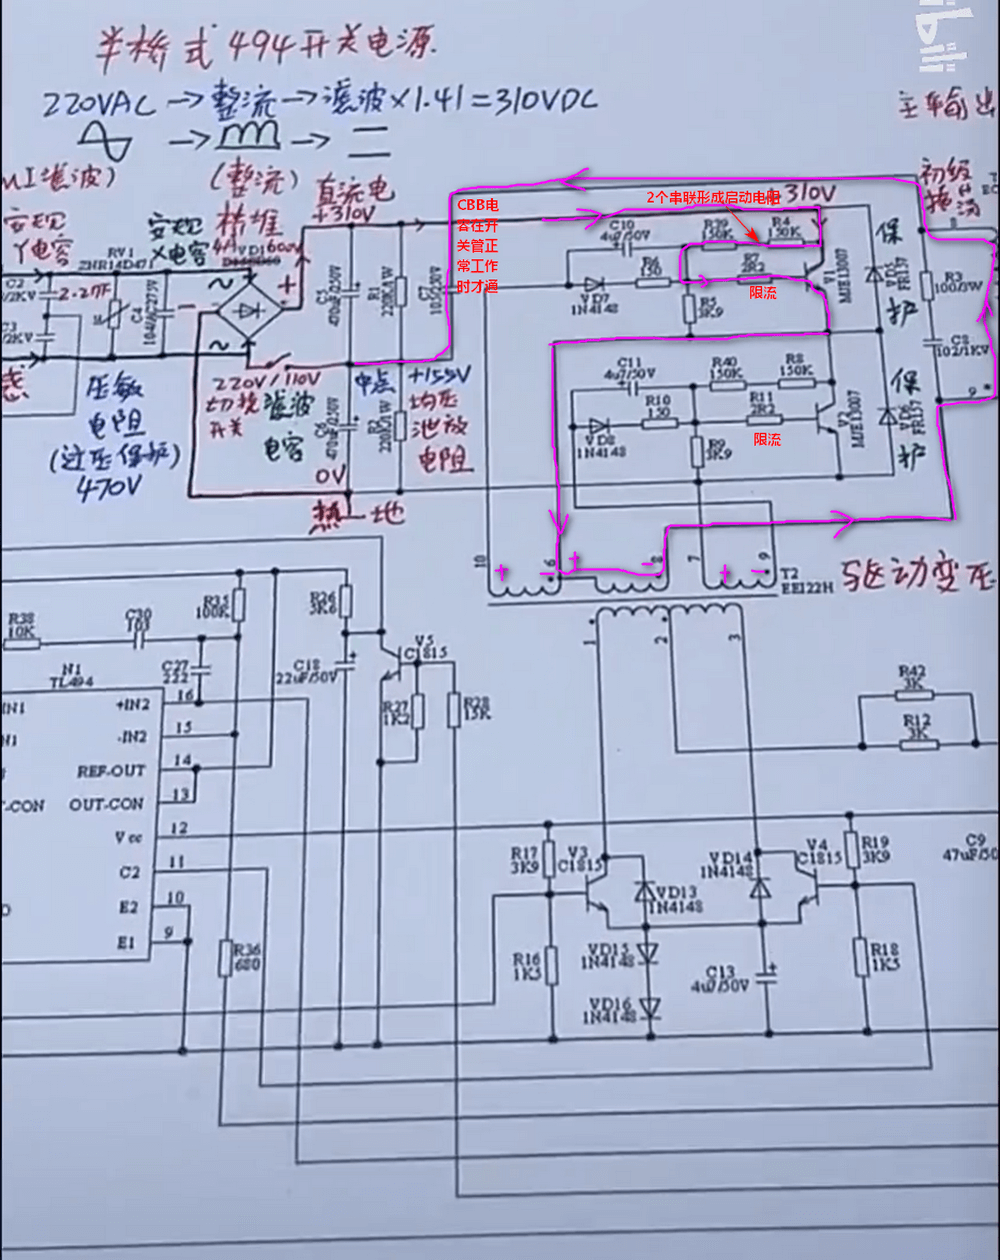 bili
半桥式494开关电源.
220VAC→整流→滤波×1.41=310VDC
主车输出
MI滤波)
(整流)
桥堆
直流电
+310V
初级
安规
Y电容
安规
X电容
4A
600V
RV1
ZNR14D471
VD1
C2
/2KV
2.2nF
C4
104/AC275V
C3
/2KV
+
~
~
CBB电
容在开
关管正
常工作
时才通
2个串联形成启动电阻
+310V
C10
4u7/50V
R39
150K
R4
150K
R6
150
R7
2R2
限流
VD7
1N4148
R5
3K9
V1
MJE13007
保
护
FR157
R3
100/3W
C8
102/1KV
8
9
压敏
电阻
(过压保护)
470V
220V/110V
切换
开关
滤波
电容
0V
热地
中点
+155V
均压
池放
电阻
C5
470u/250V
R1
C7
C6
470u/250V
R2
C11
4u7/50V
R40
150K
R8
150K
R10
150
R11
2R2
限流
VD8
1N4148
R9
3K9
V2
MJE13007
保
护
VD6
FR157
10
6
8
7
9
+
+
-
+
-
T2
EE122H
驱动变压
1
2
3
R38
10K
C30
103
R35
100K
R26
3K6
C27
222
C18
22uF/50V
V5
C1815
R27
1K2
R28
15K
N1
TL494
IN1
+IN2
16
-IN2
15
REF-OUT
14
T-CON
OUT-CON
13
Vcc
12
C2
11
E2
10
E1
9
R36
680
R42
3K
R12
3K
R17
3K9
V3
C1815
VD13
1N4148
VD14
1N4148
V4
C1815
R19
3K9
C9
47uF/50
R16
1K5
VD15
1N4148
VD16
1N4148
C13
4u7/50V
R18
1K5